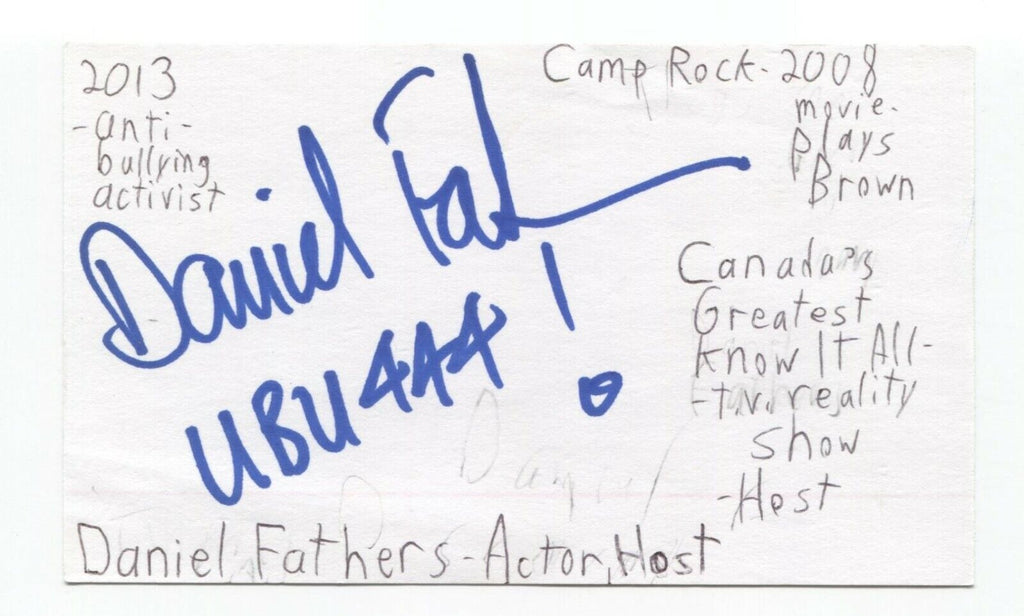 2013
-anti-
bullying
activist
Camp Rock-2008
movie-
plays
Brown
Daniel Fath
UBU 4A4
!
Canada's
Greatest
Know It All-
-t.v. reality
show
-Host
Daniel Fathers-Actor, Host